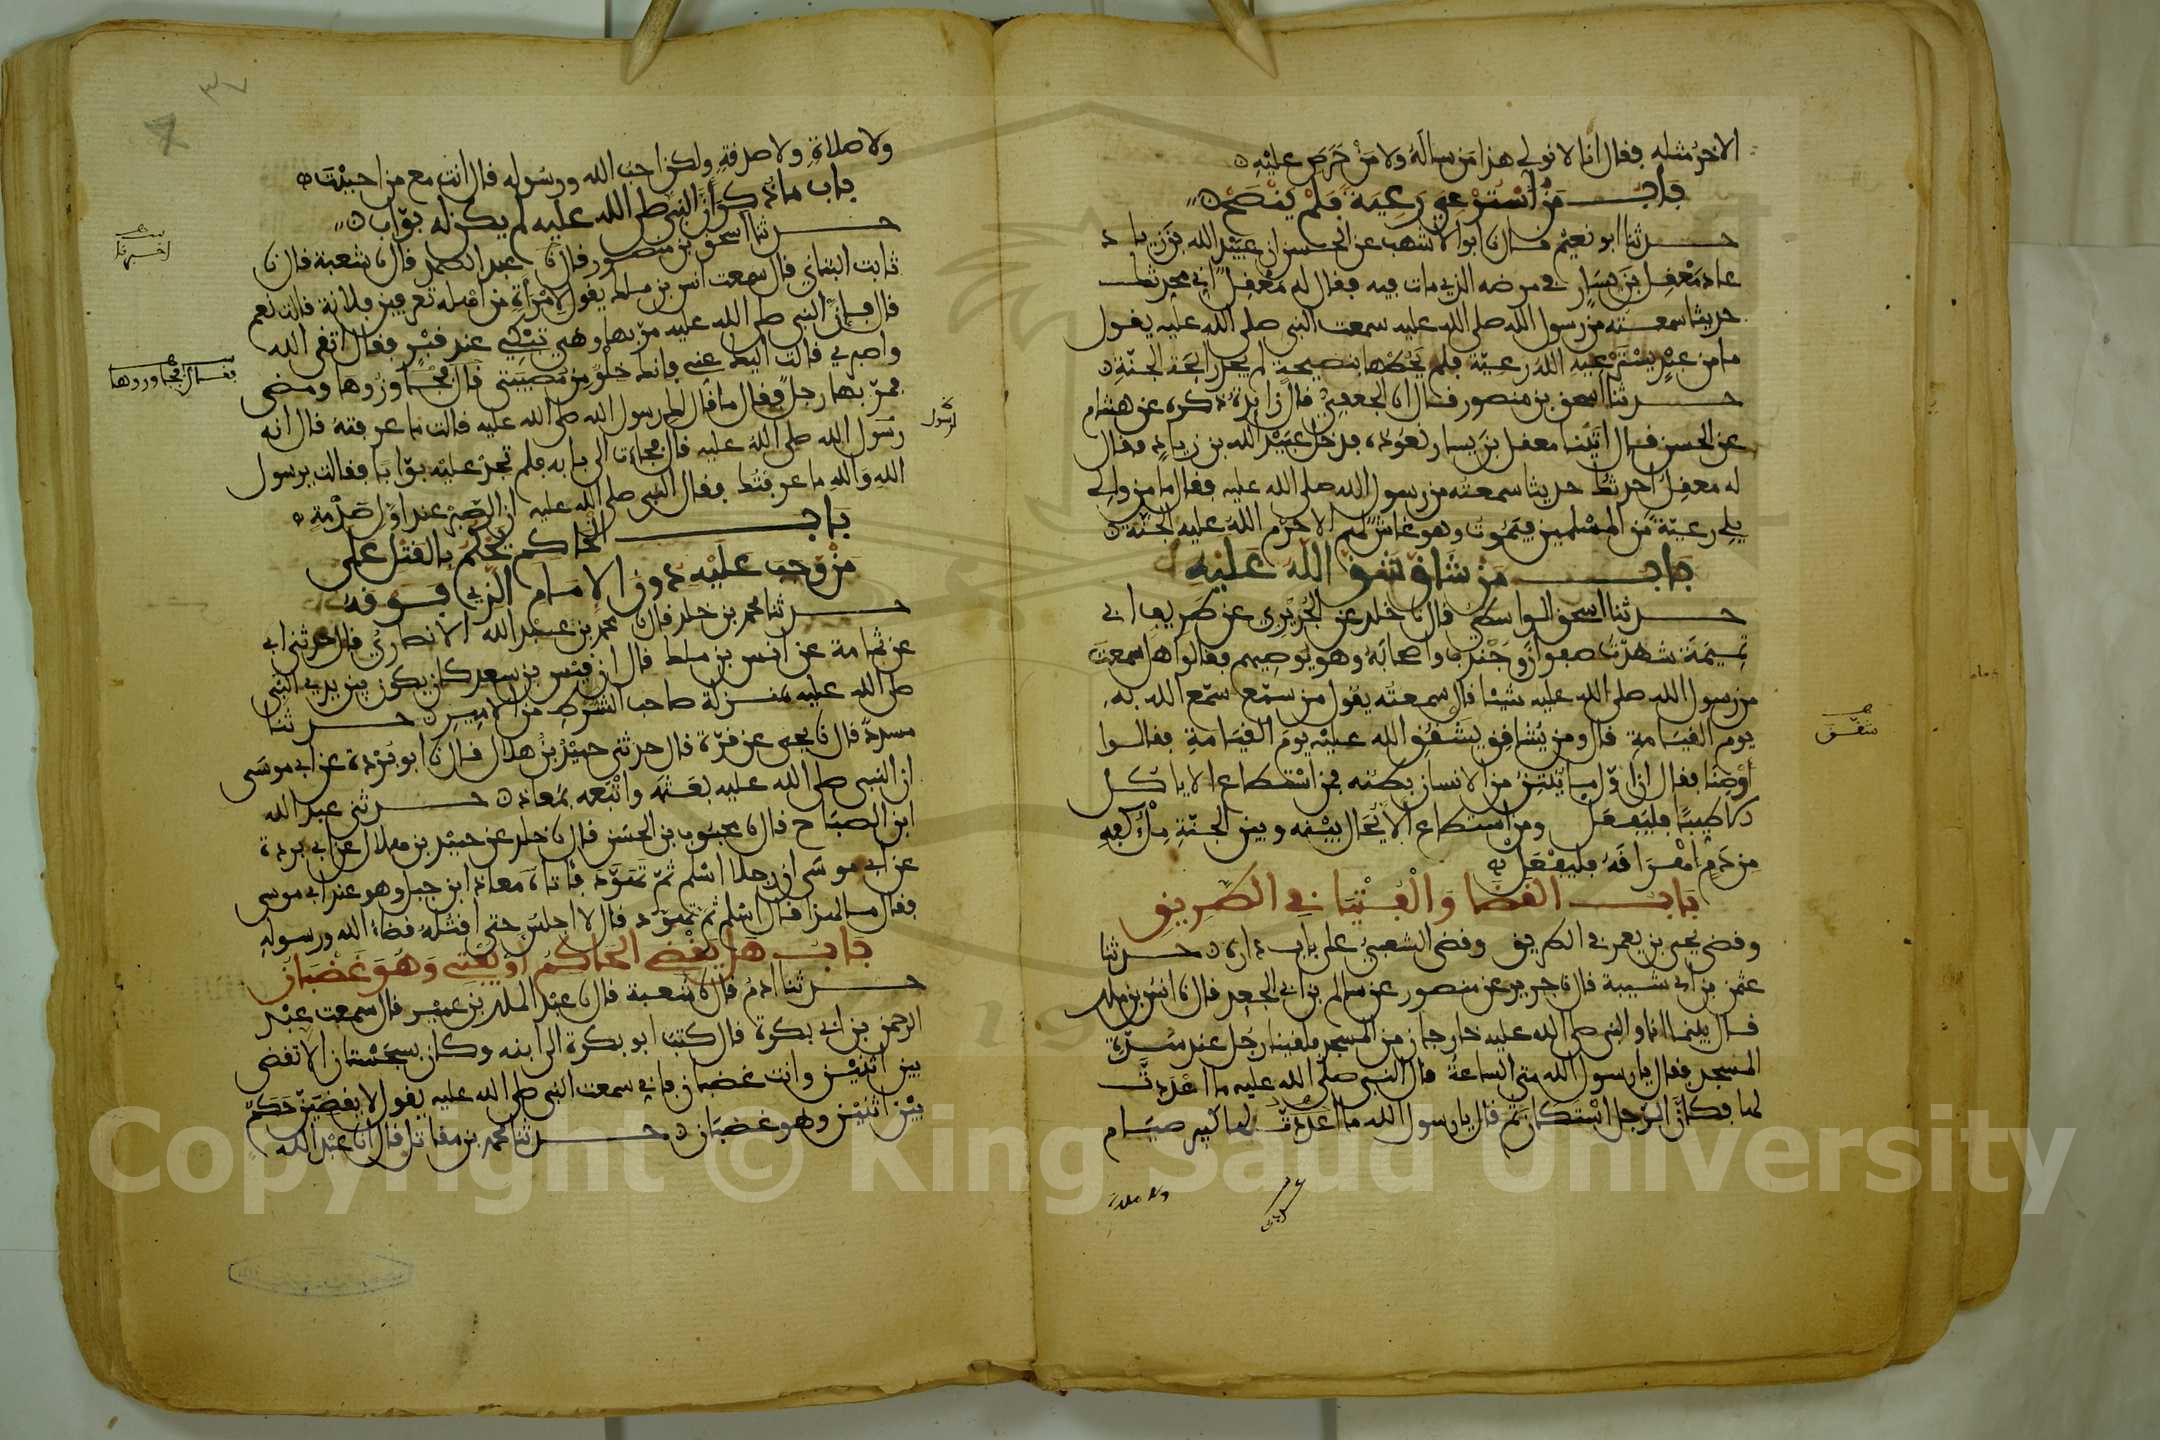 الاخر مثله فقال انا لا نولي هذا من سأله ولا من حرص عليه
باب من استرعي رعية فلم ينصح
حدثنا ابو نعيم قال نا ابو الاشهب عن الحسن ان عبيد الله بن زياد
عاد معقل بن يسار في مرضه الذي مات فيه فقال له معقل اني محدثك
حديثا سمعته من رسول الله صلى الله عليه سمعت النبي صلى الله عليه يقول
ما من عبد يسترعيه الله رعية فلم يحطها بنصيحة لم يجد رائحة الجنة
حدثنا اسحق بن منصور قال انا الجعفي قال زائدة ذكره عن هشام
عن الحسن قال اتينا معقل بن يسار نعوده فدخل عبيد الله بن زياد فقال
له معقل احدثك حديثا سمعته من رسول الله صلى الله عليه فقال ما من والي
يلي رعية من المسلمين فيموت وهو غاش لهم الا حرم الله عليه الجنة
باب من شاق شق الله عليه
حدثنا اسحق الواسطي قال نا خلد عن الجريري عن طريف ابي
تميمة شهدت صفوان وجندبا واصحابه وهو يوصيهم فقالوا هل سمعت
من رسول الله صلى الله عليه شيئا قال سمعته يقول من سمع سمع الله به
يوم القيامة قال ومن يشاقق يشقق الله عليه يوم القيامة فقالوا
اوصنا فقال ان اول ما ينتن من الانسان بطنه فمن استطاع الا ياكل
الا طيبا فليفعل ومن استطاع الا يحال بينه وبين الجنة ملء كفه
من دم اهراقه فليفعل
باب القضا والفتيا في الطريق
وقضى يحيى بن يعمر في الطريق وقضى الشعبي على باب داره حدثنا
عثمن بن ابي شيبة قال نا جرير عن منصور عن سالم بن ابي الجعد قال نا انس بن ملك
قال بينما انا والنبي صلى الله عليه خارجان من المسجد فلقينا رجل عند سدة
المسجد فقال يا رسول الله متى الساعة قال النبي صلى الله عليه ما اعددت
لها فكان الرجل استكان ثم قال يا رسول الله ما اعددت لها كبير صيام
شقق
ولا صلاة
ولا صلاة ولا صدقة ولكن احب الله ورسوله قال انت مع من احببت
باب ما ذكر ان النبي صلى الله عليه لم يكن له بواب
حدثنا اسحق بن منصور قال نا عبد الصمد قال نا شعبة قال نا
ثابت البناني قال سمعت انس بن ملك يقول لامرأة من اهله تعرفين فلانة قالت نعم
قال فان النبي صلى الله عليه مر بها وهي تبكي عند قبر فقال اتقي الله
واصبري فقالت اليك عني فانك خلو من مصيبتي قال فجاوزها ومضى
فمر بها رجل فقال ما قال لك رسول الله صلى الله عليه قالت ما عرفته قال انه
رسول الله صلى الله عليه قال فجاءت الى بابه فلم تجد عليه بوابا فقالت يرسول
الله والله ما عرفتك فقال النبي صلى الله عليه ان الصبر عند اول صدمة
باب الحاكم يحكم بالقتل على
من وجب عليه دون الامام الذي فوقه
حدثنا محمد بن خلد قال نا محمد بن عبد الله الانصاري قال حدثني ابي
عن ثمامة عن انس بن ملك قال ان قيس بن سعد كان يكون بين يدي النبي
صلى الله عليه بمنزلة صاحب الشرط من الامير حدثنا
مسدد قال نا يحيى عن قرة قال حدثني حميد بن هلال قال نا ابو بردة عن ابي موسى
ان النبي صلى الله عليه بعثه واتبعه بمعاذ حدثني عبد الله
ابن الصباح قال نا محبوب بن الحسن قال نا خلد عن حميد بن هلال عن ابي بردة
عن ابي موسى ان رجلا اسلم ثم تهود فاتاه معاذ ابن جبل وهو عند ابي موسى
فقال ما لهذا قال اسلم ثم تهود قال لا اجلس حتى اقتله قضاء الله ورسوله
باب هل يقضي الحاكم او يفتي وهو غضبان
حدثنا ادم قال نا شعبة قال نا عبد الملك بن عمير قال سمعت عبد
الرحمن بن ابي بكرة قال كتب ابو بكرة الى ابنه وكان بسجستان الا تقضي
بين اثنين وانت غضبان فاني سمعت النبي صلى الله عليه يقول لا يقضين حكم
بين اثنين وهو غضبان حدثنا محمد بن مقاتل قال انا عبد الله
اخبرنا
فقال فجاوزها
Copyright © King Saud University